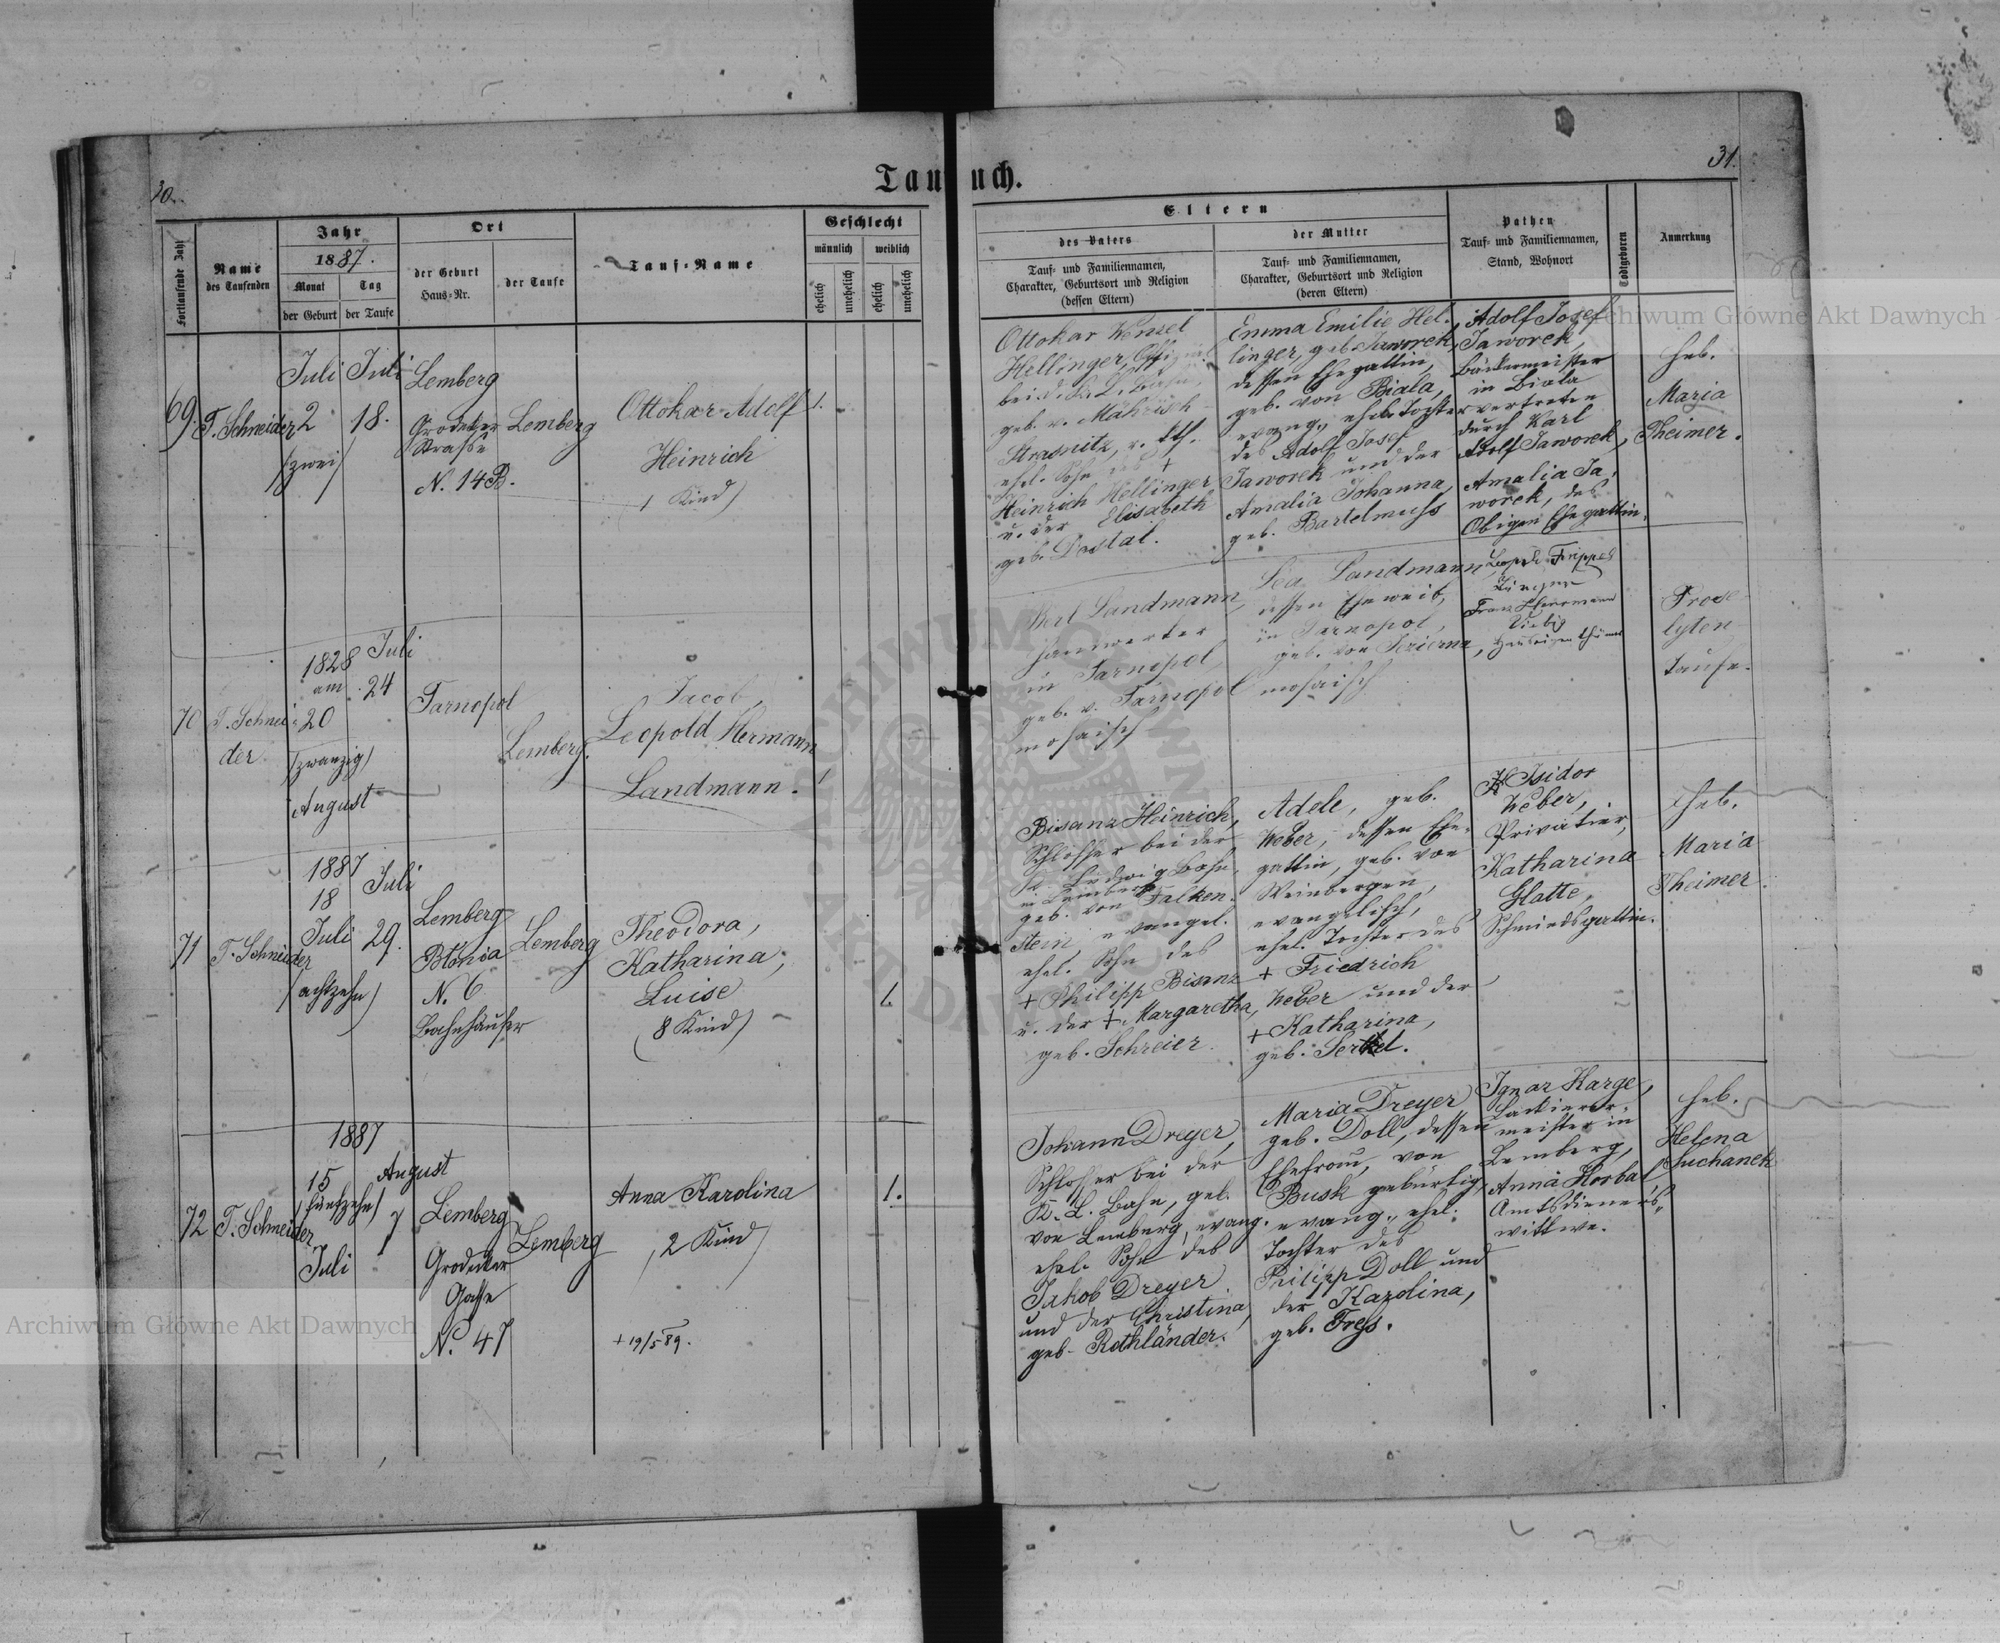 30.
Taufbuch.
31.
Fortlaufende Zahl
Name
des Taufenden
Jahr
1887.
Monat
Tag
der Geburt
der Taufe
Ort
der Geburt
Haus-Nr.
der Taufe
Tauf-Name
Geschlecht
männlich
weiblich
ehelich
unehelich
ehelich
unehelich
Eltern
des Vaters
Tauf- und Familiennamen,
Charakter, Geburtsort und Religion
(dessen Eltern)
der Mutter
Tauf- und Familiennamen,
Charakter, Geburtsort und Religion
(deren Eltern)
Pathen
Tauf- und Familiennamen,
Stand, Wohnort
Todtgeboren
Anmerkung
69.
T. Schneider
Juli
2
/zwei/
Juli
18.
Lemberg
Grodeker
Strasse
N. 14 B.
Lemberg
Ottokar Adolf
Heinrich
(1 Kind)
1.
Ottokar Wenzel
Hellinger,
bei d.
geb. v. Mährisch
Strasnitz, r. kth.
ehel. Sohn des +
Heinrich Hellinger
u. der Elisabeth
geb. Dostal.
Emma Emilie Hel-
linger, geb. Jaworek,
dessen Ehegattin,
geb. von Biala,
evang., ehel. Tochter
des Adolf Josef
Jaworek und der
Amalia Johanna,
geb. Bartelmuss
Adolf Josef
Jaworek,
Bäckermeister
in Biala
vertreten
durch Karl
Adolf Jaworek,
Amalia Ja-
worek, des
Obigen Ehegattin.
Heb.
Maria
Theimer.
70
T. Schnei-
der.
1828
am
20
/zwanzig/
August
Juli
24
Tarnopol
Lemberg.
Jacob,
Leopold Hermann
Landmann.
1
Landmann,
in Tarnopol
geb. v. Tarnopol
mosaisch
Lea Landmann,
dessen Eheweib,
in Tarnopol,
geb. von Jezierna,
mosaisch
Franz Herrmann
Prose-
lyten
taufe.
71
T. Schneider
1887
18
Juli
(achtzehn)
Juli
29.
Lemberg
Blonia
N. 6
Bahnhäuser
Lemberg
Theodora,
Katharina,
Luise
(8 Kind)
1.
Bisanz Heinrich,
Schlosser bei der
K. Ludwig Bahn,
in Lemberg
geb. von Falken-
stein, evangel.
ehel. Sohn des
+ Philipp Bisanz
u. der +. Margaretha,
geb. Schreier.
Adele, geb.
Weber, dessen Ehe-
gattin, geb. von
Weinbergen,
evangelisch,
ehel. Tochter des
+ Friedrich
Weber und der
+ Katharina,
geb. Serkel.
Isidor
Weber,
Privatier,
Katharina
Glatte,
Schmiedsgattin.
Heb.
Maria
Theimer.
72
T. Schneider
1887
15
(fünfzehn)
Juli
August
7
Lemberg
Grodeker
Gasse
N. 47
Lemberg
Anna Karolina
(2 Kind)
+ 19/5 89.
1.
Johann Dreyer,
Schlosser bei der
K. L. Bahn, geb.
von Lemberg, evang.
ehel. Sohn des
Jakob Dreyer
und der Christina,
geb. Rothländer.
Maria Dreyer
geb. Doll, dessen
Ehefrau, von
Busk gebürtig,
evang., ehel.
Tochter des
Philipp Doll und
der Karolina,
geb. Fress.
Ignaz Karge,
Lackierer-
meister in
Lemberg,
Anna Korbal
Amtsdieners-
wittwe.
Heb.
Helena
Suchanek
Archiwum Główne Akt Dawnych
Archiwum Główne Akt Dawnych